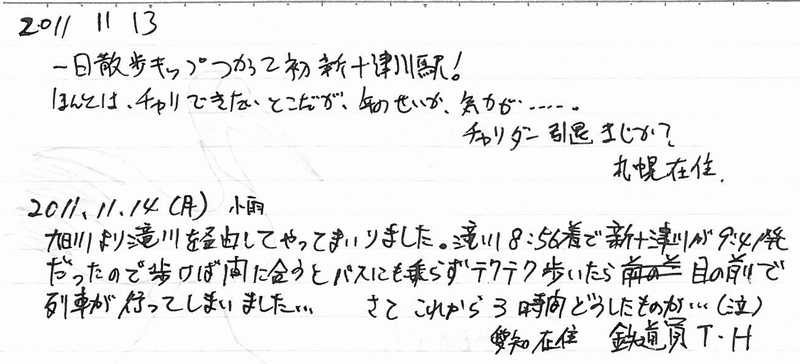 2011 11 13
一日散歩キップつかって初 新十津川駅!
ほんとは、チャリできたいとこだが、年のせいか、気力が……。
チャリダー引退まじか?
札幌在住.
2011.11.14(月) 小雨
旭川より滝川を経由してやってまいりました。滝川8:56着で新十津川が9:41発
だったので歩けば間に合うとバスにも乗らずテクテク歩いたら 目の前で
列車が行ってしまいました… さて これから3時間どうしたものか…(泣)
愛知在住 鉄道員 T・H